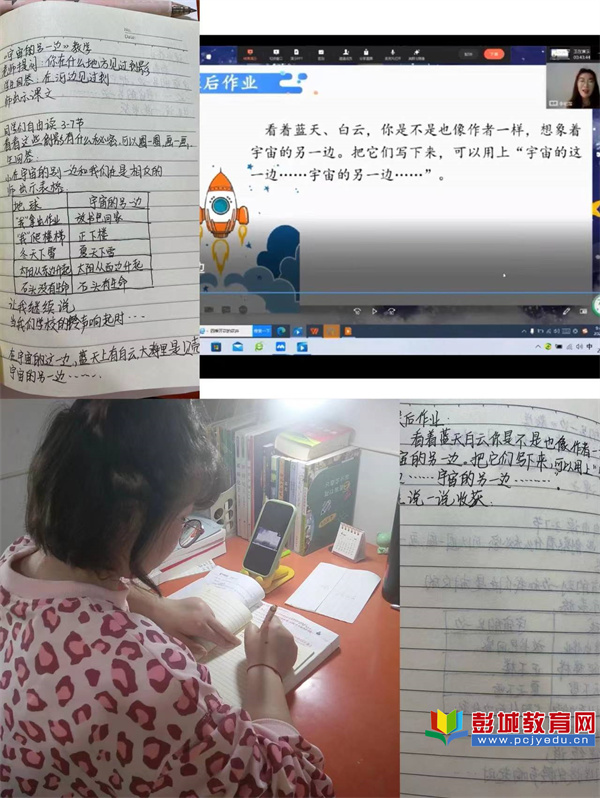 《宇宙的另一边》教学
老师提问:你在什么地方见过倒影
生回答:在河边见过到
师出示课文
同学们自由读3-7节
看看这些倒影有什么秘密,可以圈一圈画一画,
生回答:
小在宇宙的另一边和我们在是相反的
师出示表格
地球 宇宙的另一边
“我”拿出作业 放书包回家
“我”爬楼梯 正下楼
冬天下雪 夏天下雪
太阳从东边升起 太阳从西边升起
石头没有生命 石头有生命
让我继续说
当我们学校的铃声响起时…
在宇宙的这一边,蓝天上有白云,大海里是
宇宙的另一边……
后作业
看着蓝天、白云,你是不是也像作者一样,想象着
宇宙的另一边。把它们写下来,可以用上“宇宙的这
一边……宇宙的另一边……”。
后作业:
看着蓝天白云你是不是也像作者一
宙的另一边。把它们写下来,可以用上“
……宇宙的另一边……
说一说收获
彭城教育网
www.pcjyedu.cn